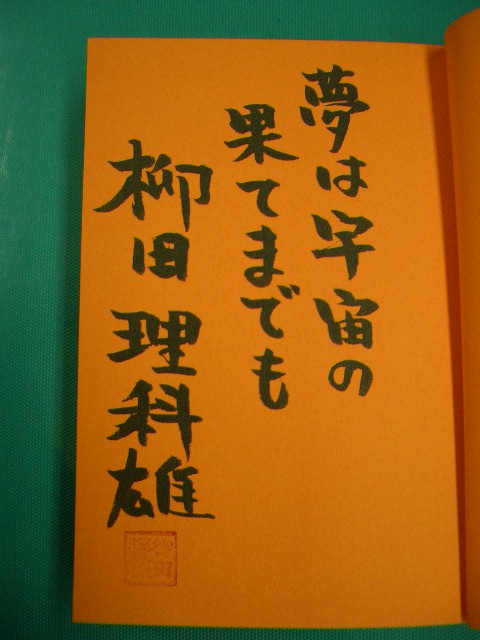 夢は宇宙の
果てまでも
柳田理科雄